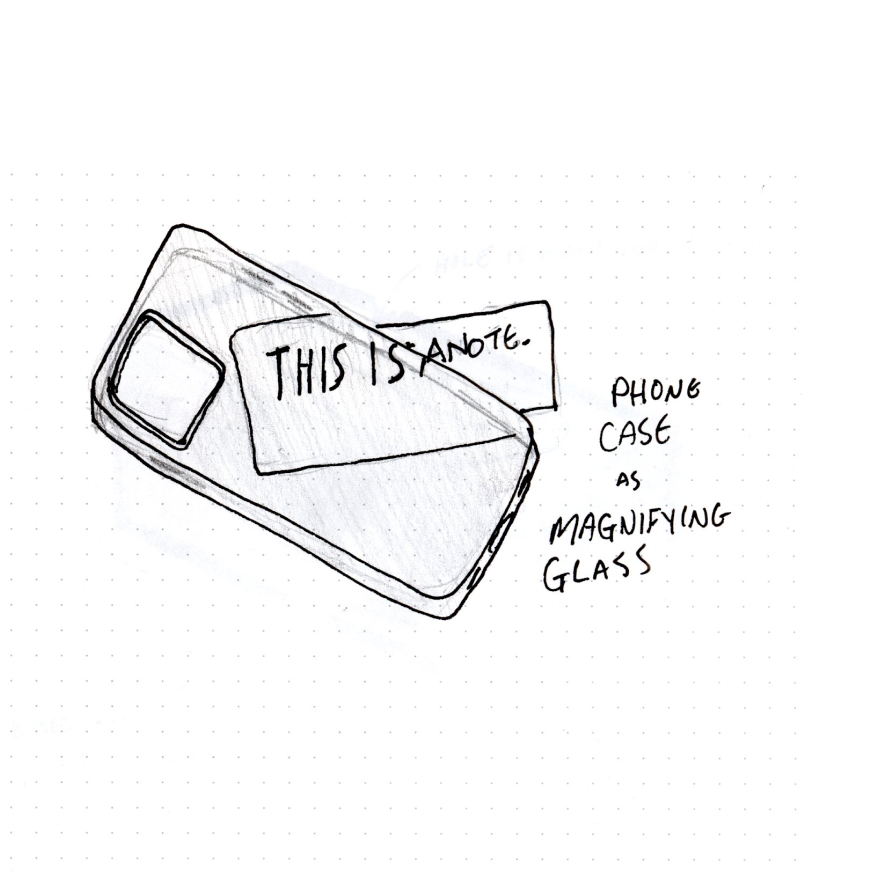 THIS IS A NOTE.
PHONE
CASE
AS
MAGNIFYING
GLASS